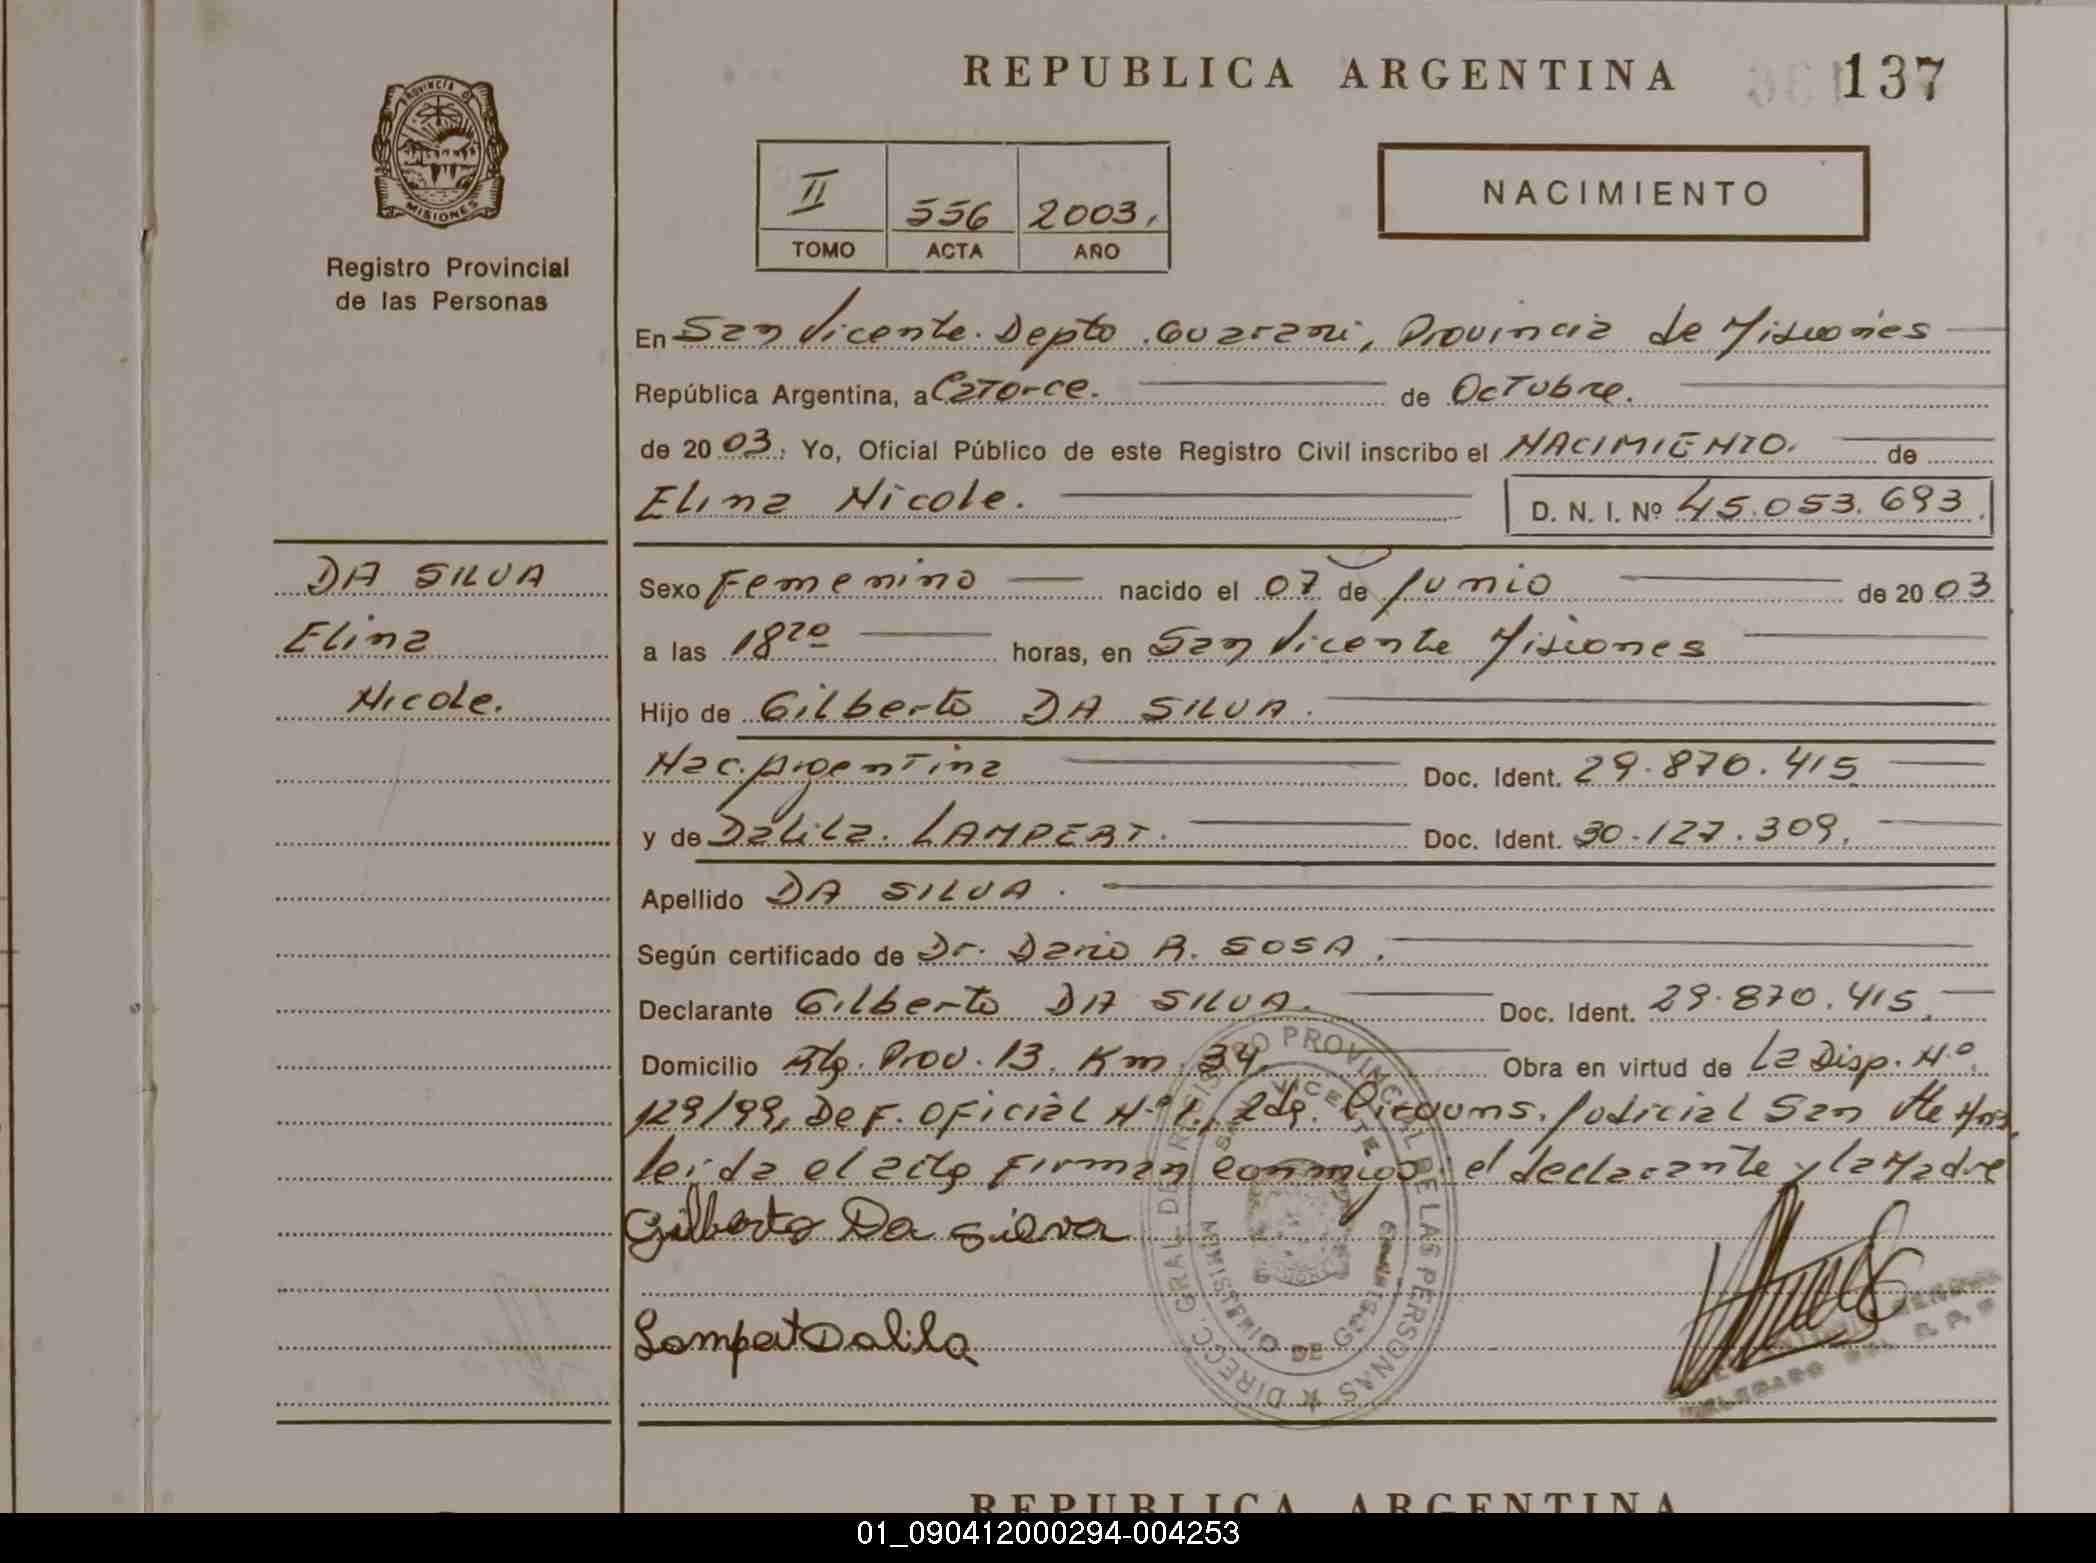 REPUBLICA ARGENTINA
137
PROVINCIA DE
MISIONES
Registro Provincial
de las Personas
II 556 2003,
TOMO ACTA AÑO
NACIMIENTO
En San Vicente. Depto. Guarani, Provincia de Misiones
República Argentina, a Catorce. de Octubre.
de 20 03. Yo, Oficial Público de este Registro Civil inscribo el NACIMIENTO. de
Elina Nicole. D. N. I. Nº 45.053.693
DA SILVA
Elina
Nicole.
Sexo Femenino nacido el 07 de Junio de 20 03
a las 18 20 horas, en San Vicente Misiones
Hijo de Gilberto DA SILVA.
Nac. Argentina Doc. Ident. 29.870.415
y de Dalila. LAMPERT. Doc. Ident. 30.127.309.
Apellido DA SILVA.
Según certificado de Dr. Dario R. SOSA.
Declarante Gilberto DA SILVA. Doc. Ident. 29.870.415.
Domicilio Prov. 13. Km. 34. Obra en virtud de La Disp. Nº
129/99, Def. Oficial Nº 1, 2da. Circuns. Judicial San Vte Mnes.
leida el acta firman conmigo: el declarante y la Madre
Gilberto Da Silva
Lampert Dalila
DIRECC. GRAL. DE REGISTRO PROVINCIAL DE LAS PERSONAS
SAN VICENTE
REPUBLICA ARGENTINA
01_090412000294-004253